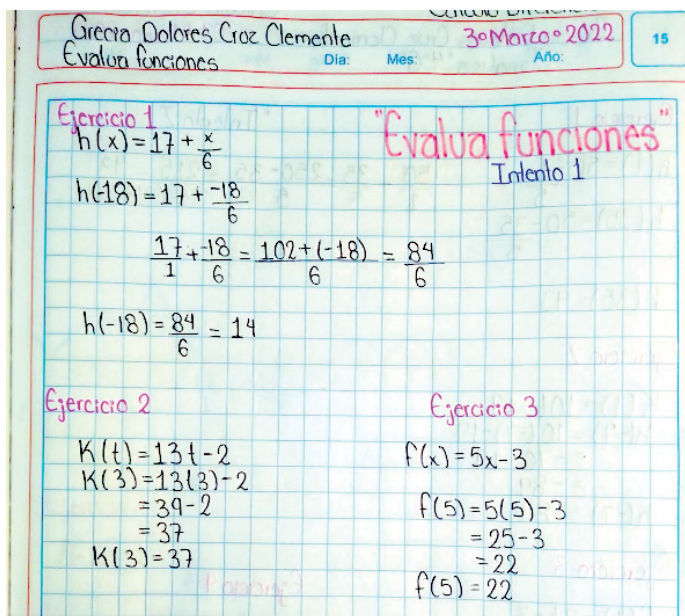 Grecia Dolores Croz Clemente
3°Marzo°2022
15
Evalua funciones
Dia:
Mes:
Año:
Ejercicio 1
"Evalua funciones"
Intento 1
h(x)=17+x/6
h(-18)=17+-18/6
17/1+-18/6=102+(-18)/6=84/6
h(-18)=84/6=14
Ejercicio 2
K(t)=13t-2
K(3)=13(3)-2
=39-2
=37
K(3)=37
Ejercicio 3
f(x)=5x-3
f(5)=5(5)-3
=25-3
=22
f(5)=22